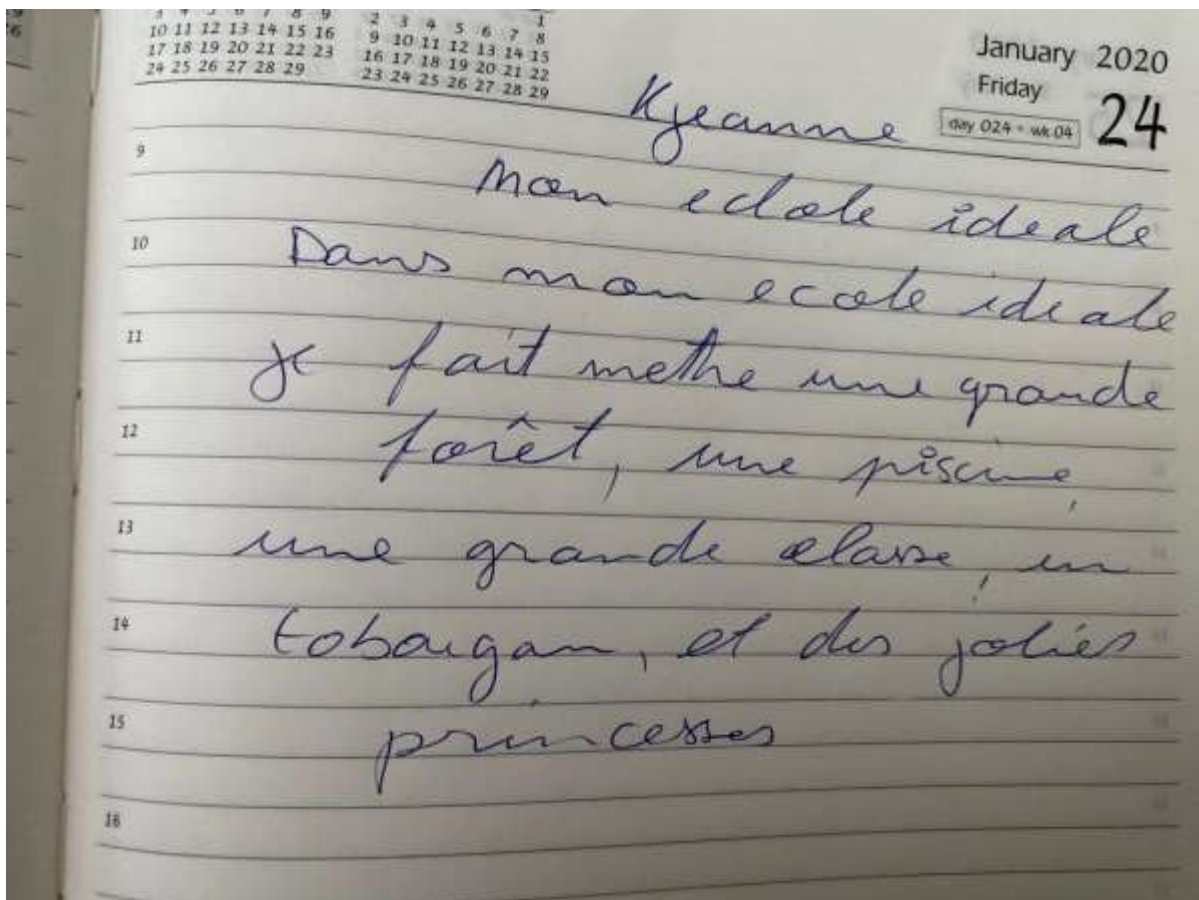 3 4 5 6 7 8 9
10 11 12 13 14 15 16
17 18 19 20 21 22 23
24 25 26 27 28 29
1
2 3 4 5 6 7 8
9 10 11 12 13 14 15
16 17 18 19 20 21 22
23 24 25 26 27 28 29
January 2020
Friday
day 024 • wk 04
24
Kjeanne
9
Mon ecole ideale
10
Dans mon ecole ideale
11
je fait methe une grande
12
forêt, une piscine,
13
une grande classe, un
14
tobaugan, et des jolies
15
princesses
16